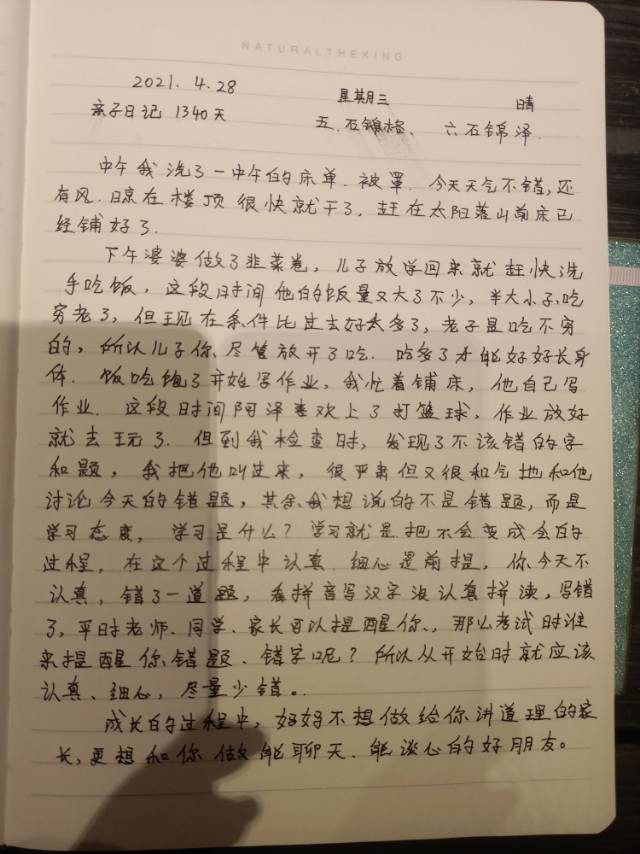 NATURALTHEKING
2021. 4. 28 星期三 晴
亲子日记 1340天 五.石锦格、六石锦泽.
中午我洗了一中午的床单.被罩.今天天气不错,还
有风.晾在楼顶很快就干了,赶在太阳落山前床已
经铺好了.
下午婆婆做了韭菜卷,儿子放学回来就赶快洗
手吃饭,这段时间他的饭量又大了不少,半大小子,吃
穷老子,但现在条件比过去好太多了,老子是吃不穷
的,所以儿子你尽管放开了吃.吃多了才能好好长身
体.饭吃饱了开始写作业,我忙着铺床,他自己写
作业.这段时间阿泽喜欢上了打篮球,作业放好
就去玩了.但到我检查时,发现了不该错的字
和题,我把他叫过来,很严肃但又很和气地和他
讨论今天的错题,其余我想说的不是错题,而是
学习态度,学习是什么?学习就是把不会变成会的
过程,在这个过程中认真.细心是前提,你今天不
认真,错了一道题,看拼音写汉字没认真拼读,写错
了,平时老师.同学、家长可以提醒你、那么考试时谁
来提醒你错题、错字呢?所以从开始时就应该
认真、细心,尽量少错。
成长的过程中,妈妈不想做给你讲道理的家
长,更想和你做能聊天、能谈心的好朋友。